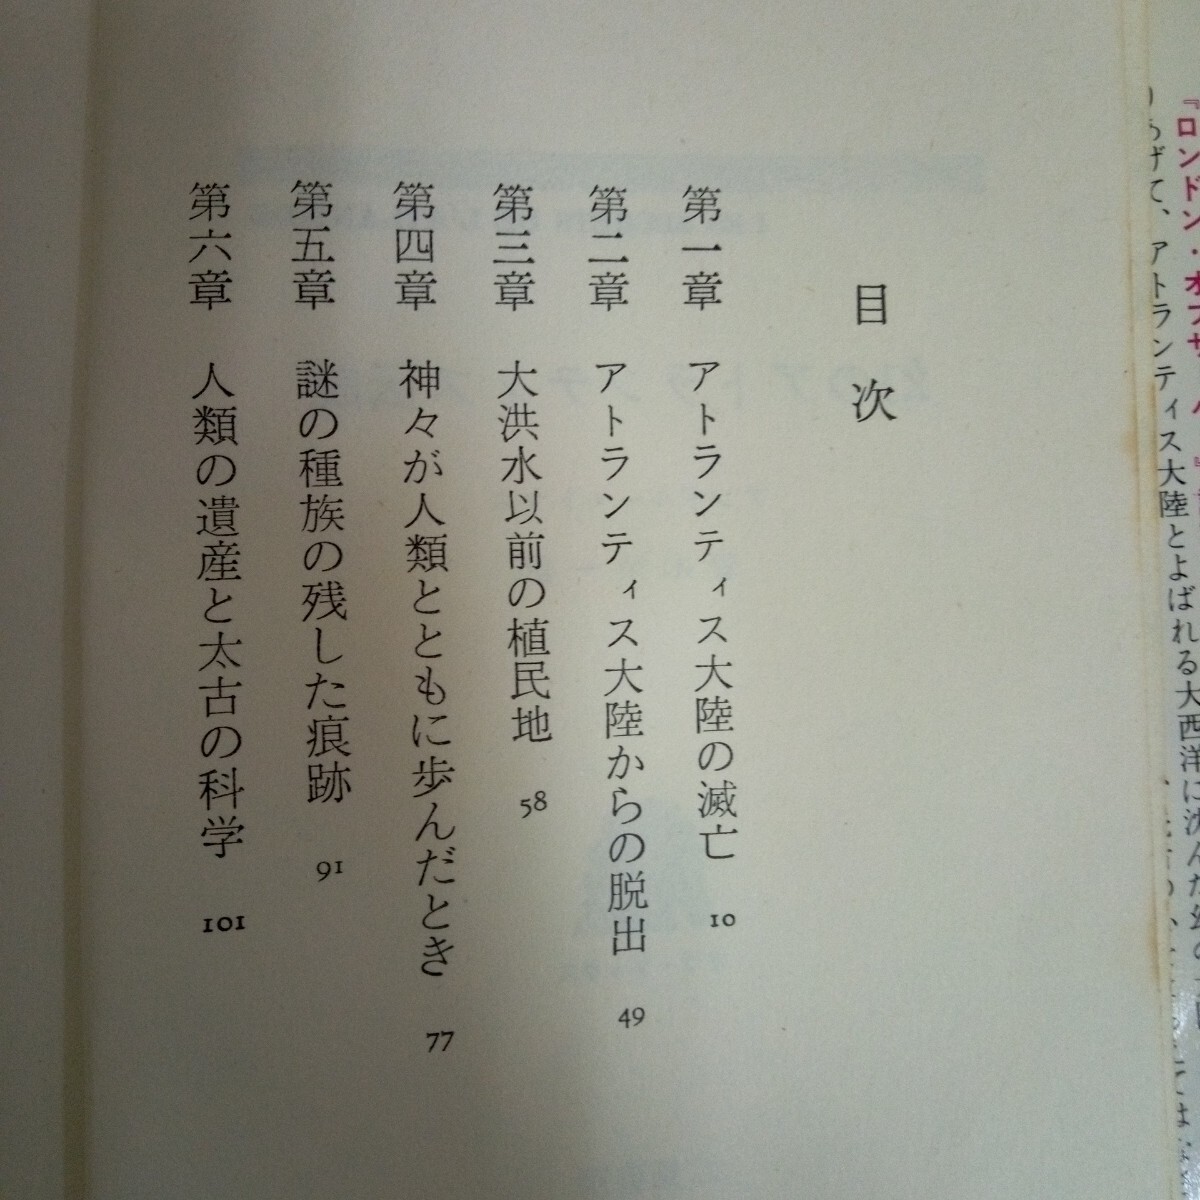 『ロンドン・オブザ
りあげて、アトランティス大陸とよばれる大西洋に沈んだ幻の
目次
第一章 アトランティス大陸の滅亡 10
第二章 アトランティス大陸からの脱出 49
第三章 大洪水以前の植民地 58
第四章 神々が人類とともに歩んだとき 77
第五章 謎の種族の残した痕跡 91
第六章 人類の遺産と太古の科学 101